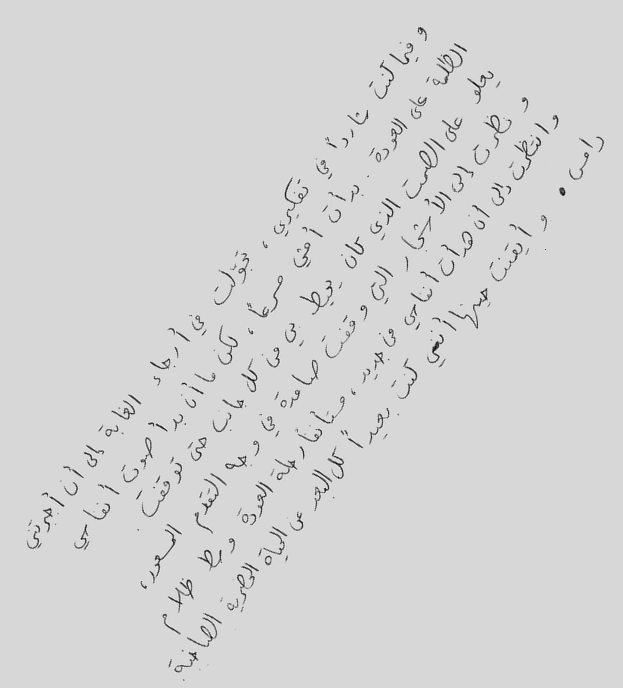 وفيما كنت شارداً في تفكيري، تجوّلت في أرجاء الغابة إلى أن أجبرتني
الظلمة على العودة. بدأت أمشي مسرعاً، لكن ما أن بدأ صوت أنفاسي
يعلو على الصمت الذي كان يحيط بي من كل جانب حتى توقفت.
ونظرت إلى الأشجار التي وقفت صامدة في وجه التقدم المسعور،
وانتظرت إلى أن هدأت أنفاسي من جديد، مستأنفا رحلة العودة وسط ظلام
دامس. وأيقنت حينها أنني كنت بعيداً كل البعد عن الحياة الحضرية الصاخبة